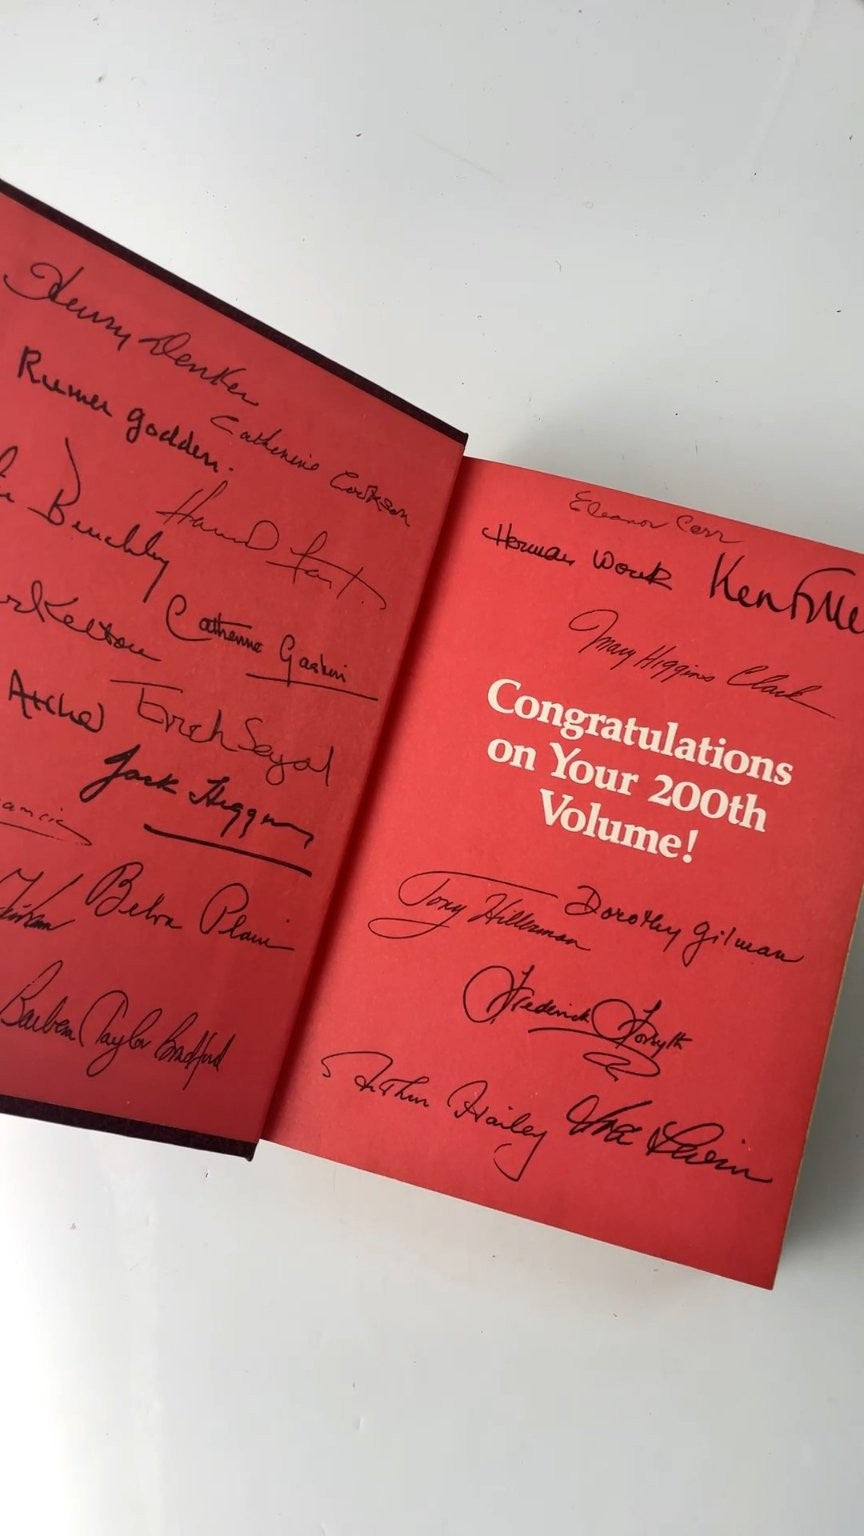 Henry Denker
Rumer Godden.
Catherine Cookson
Benchley
Howard Fast.
Kelton
Catherine Gaskin
Archer
Erich Segal
Jack Higgins
Belva Plain
Barbara Taylor Bradford
Eleanor
Herman Wouk
Ken Folle
Mary Higgins Clark
Congratulations
on Your 200th
Volume!
Tony Hillerman
Dorothy Gilman
Frederick Forsyth
Arthur Hailey
Ira Levin